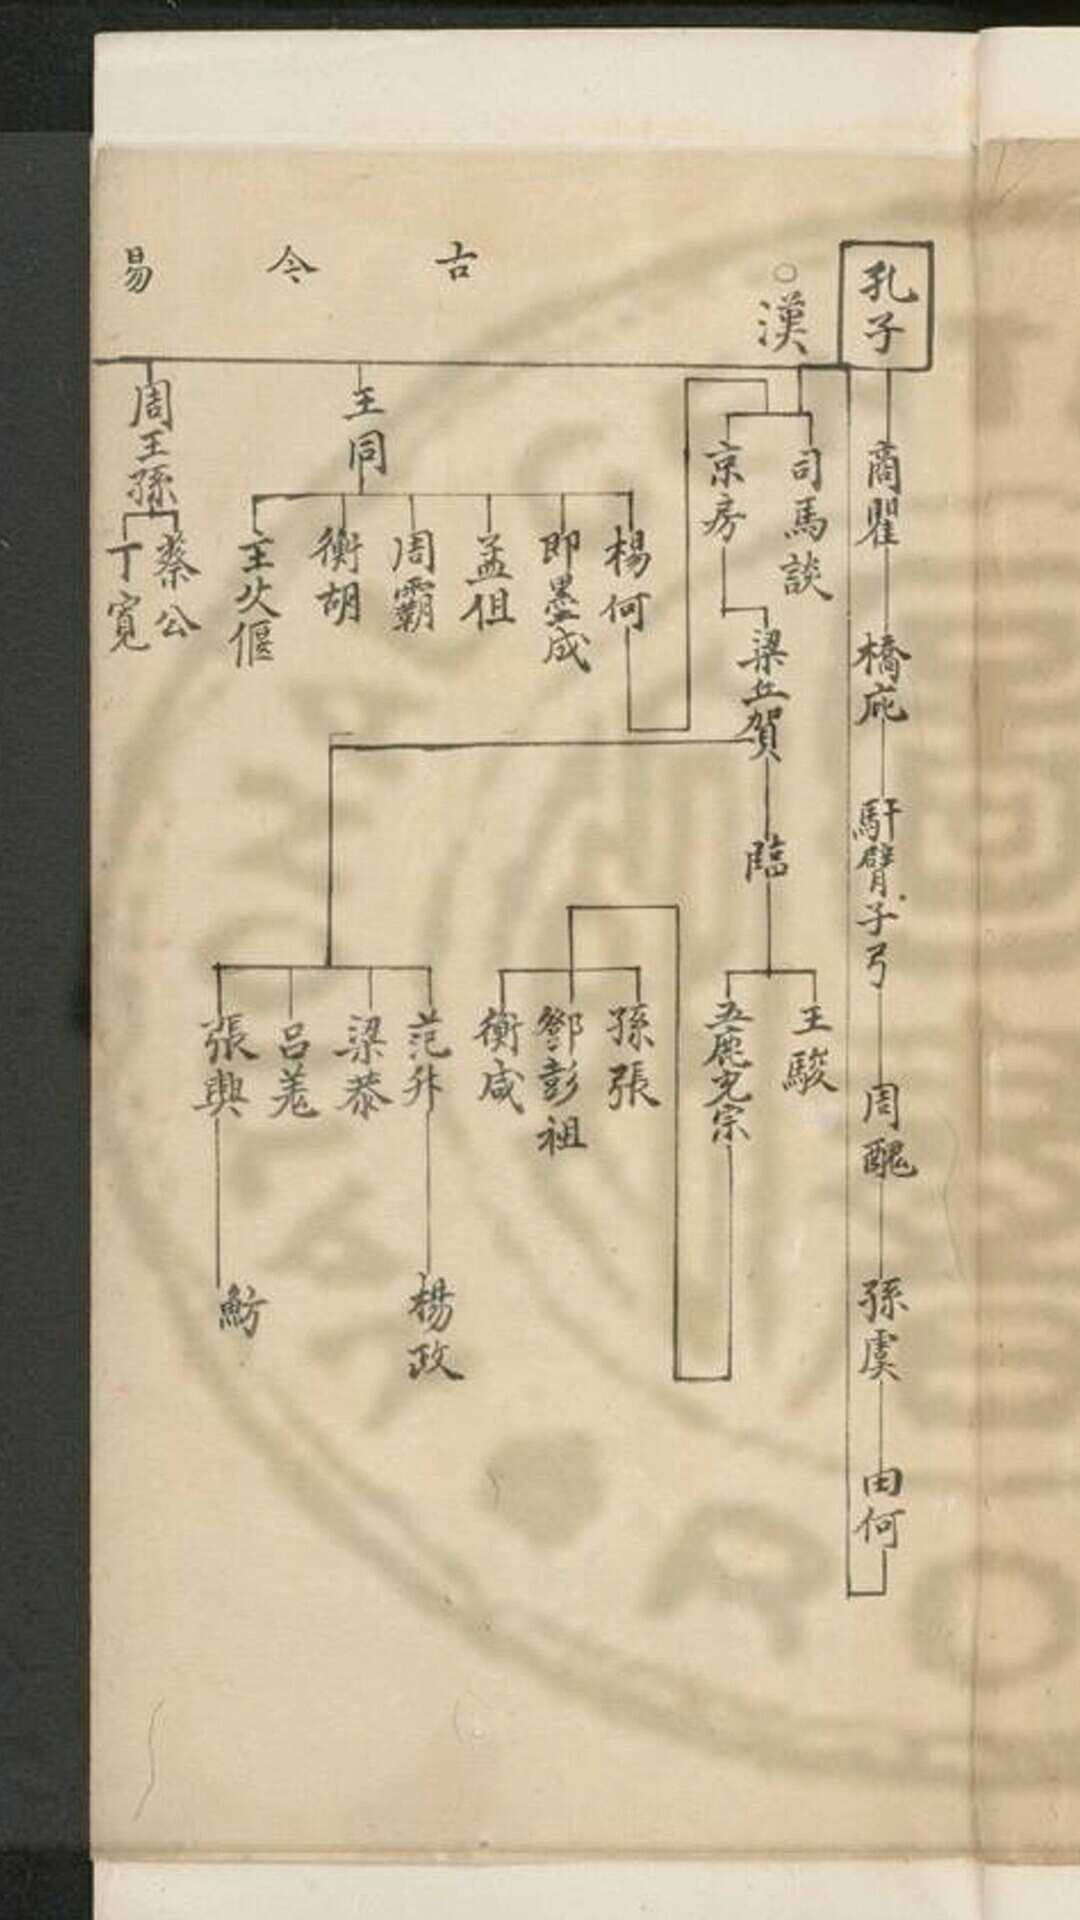 孔子
商瞿
橋庇
馯臂子弓
周醜
孫虞
田何
○漢
古今易
王同
周王孫
司馬談
京房
梁丘賀
臨
王駿
五鹿充宗
楊何
即墨成
孟但
周霸
衡胡
主父偃
蔡公
丁寬
孫張
鄧彭祖
衡咸
范升
梁恭
呂羌
張興
楊政
魴